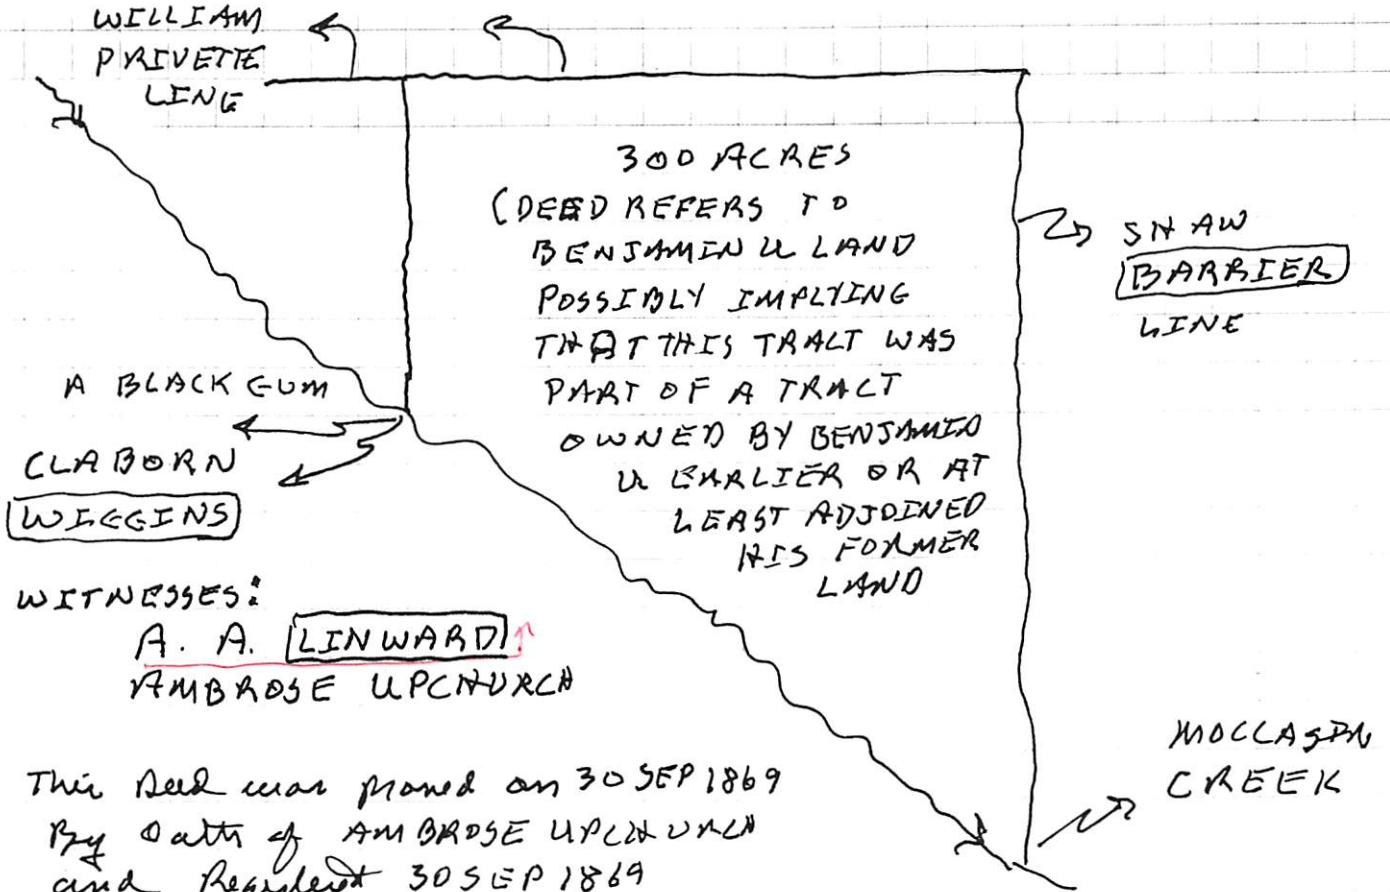 WILLIAM
PRIVETTE
LINE
300 ACRES
(DEED REFERS TO
BENJAMIN U LAND
POSSIBLY IMPLYING
THAT THIS TRACT WAS
PART OF A TRACT
OWNED BY BENJAMIN
U EARLIER OR AT
LEAST ADJOINED
HIS FORMER
LAND
SHAW
BARRIER
LINE
A BLACK GUM
CLABORN
WIGGINS
WITNESSES:
A. A. LINWARD
AMBROSE UPCHURCH
MOCCASIN
CREEK
This Deed was proved on 30 SEP 1869
By Oath of AMBROSE UPCHURCH
and Registered 30 SEP 1869